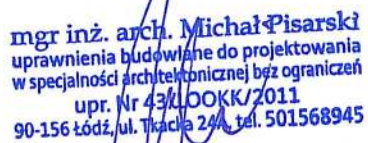 mgr inż. arch. Michał Pisarski
uprawnienia budowlane do projektowania
w specjalności architektonicznej bez ograniczeń
upr. Nr 43/LOOKK/2011
90-156 Łódź, ul. Tkacka 24A, tel. 501568945